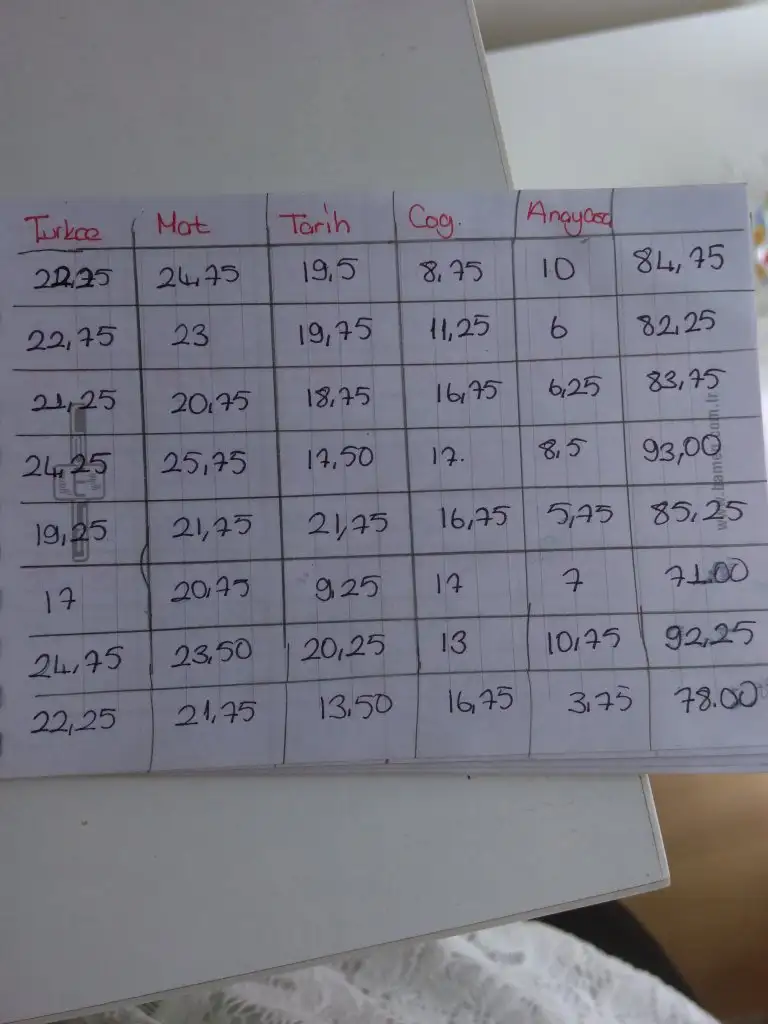 Türkçe Mat Tarih Coğ. Anayasa
22,25 24,75 19,5 8,75 10 84,75
22,75 23 19,75 11,25 6 82,25
21,25 20,75 18,75 16,75 6,25 83,75
24,25 25,75 17,50 17. 8,5 93,00
19,25 21,75 21,75 16,75 5,75 85,25
17 20,75 9,25 17 7 71.00
24,75 23,50 20,25 13 10,75 92,25
22,25 21,75 13,50 16,75 3,75 78.00